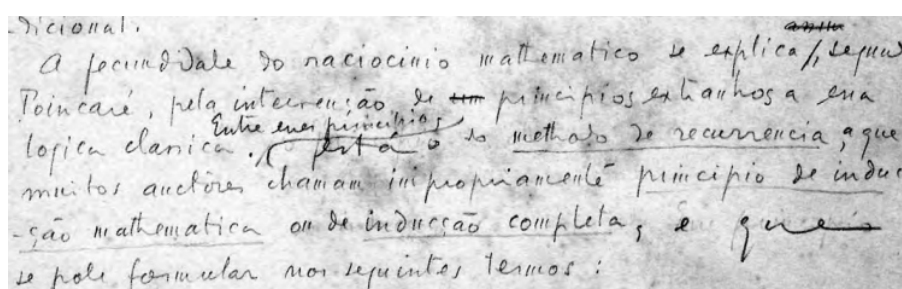 dicional.
A fecundidade do raciocinio mathematico se explica, segundo
Poincaré, pela intervenção de principios extranhos a essa
logica classica. Entre esses principios está o do methodo de recurrencia, a que
muitos auctores chamam impropriamente principio de induc
-ção mathematica ou de inducção completa, e que
se pode formular nos seguintes termos: